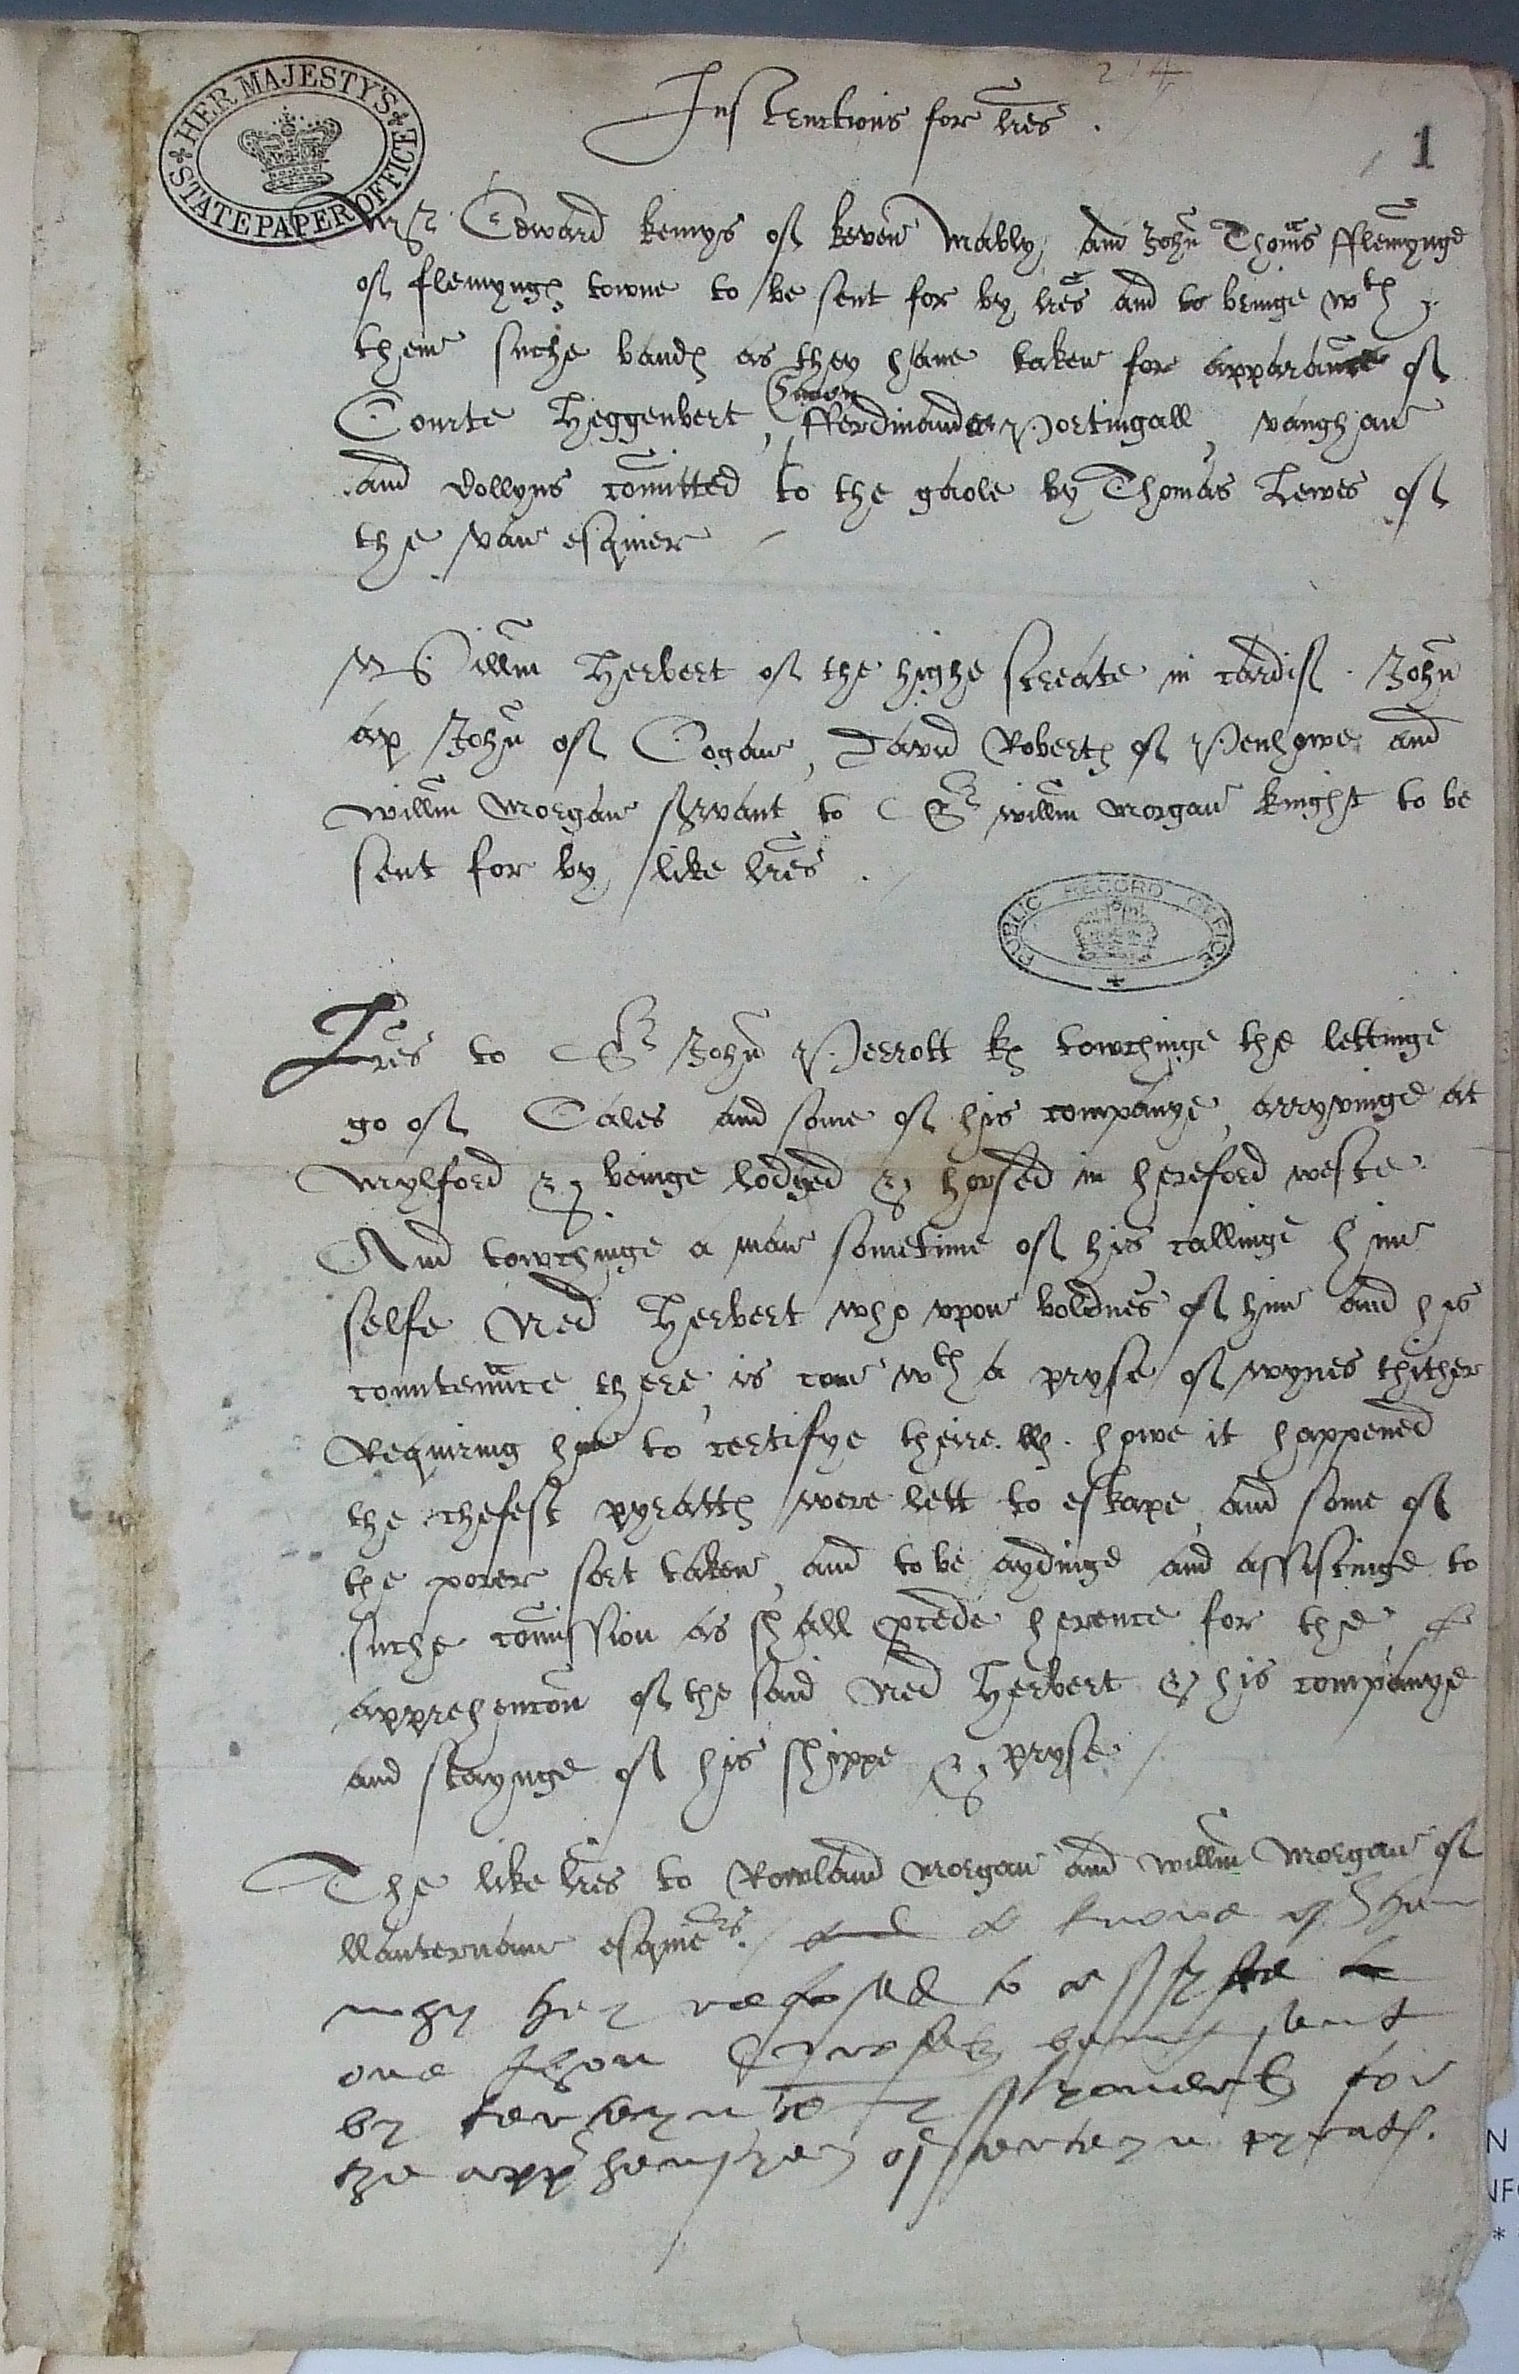 214
Instructions for lres.
1
HER MAJESTY'S STATE PAPER OFFICE
Mr Edward kemys of keven Mably, and John Thoms fflemynge
of flemyngs towne to be sent for by lres and to bringe wth
them suche bands as they have taken for apparaunce of
Courte Heggenbert, fferdinando Portingall, vaughan
and Vollyns comitted to the gaole by Thomas Lewes of
the Van esquier
Willm Herbert of the highe streate in Cardif. John
ap John of Cogan, Davyd Roberts of Penhowe and
willm Morgan servant to Sr willm Morgan knight to be
sent for by like lres.
PUBLIC RECORD OFFICE
Lres to Sr John Perrott k towchinge the lettinge
go of Cales and some of his companye, arryvinge at
Mylford & beinge lodged & horsed in hereford weste.
And towchinge a man sometime of his callinge him
selfe Ned Herbert who upon boldnes of him and his
countenaunce there, is com wth a pryse of wynes thither
Requiring him to certifye theire. lls. howe it happened
the chefest pyratts were lett to eskape, and some of
the porer sort taken, and to be aydinge and assistinge to
suche comission as shall pcede herence for the
apprehencon of the said Ned Herbert & his companye
and stayinge of his shippe & pryse.
The like lres to Rowland Morgan and willm Morgan of
llanternam esquiers. and to knowe of them
why they refused to assiste
one Jhon beinge sent
by for
the apphension of certeyn pyrats.